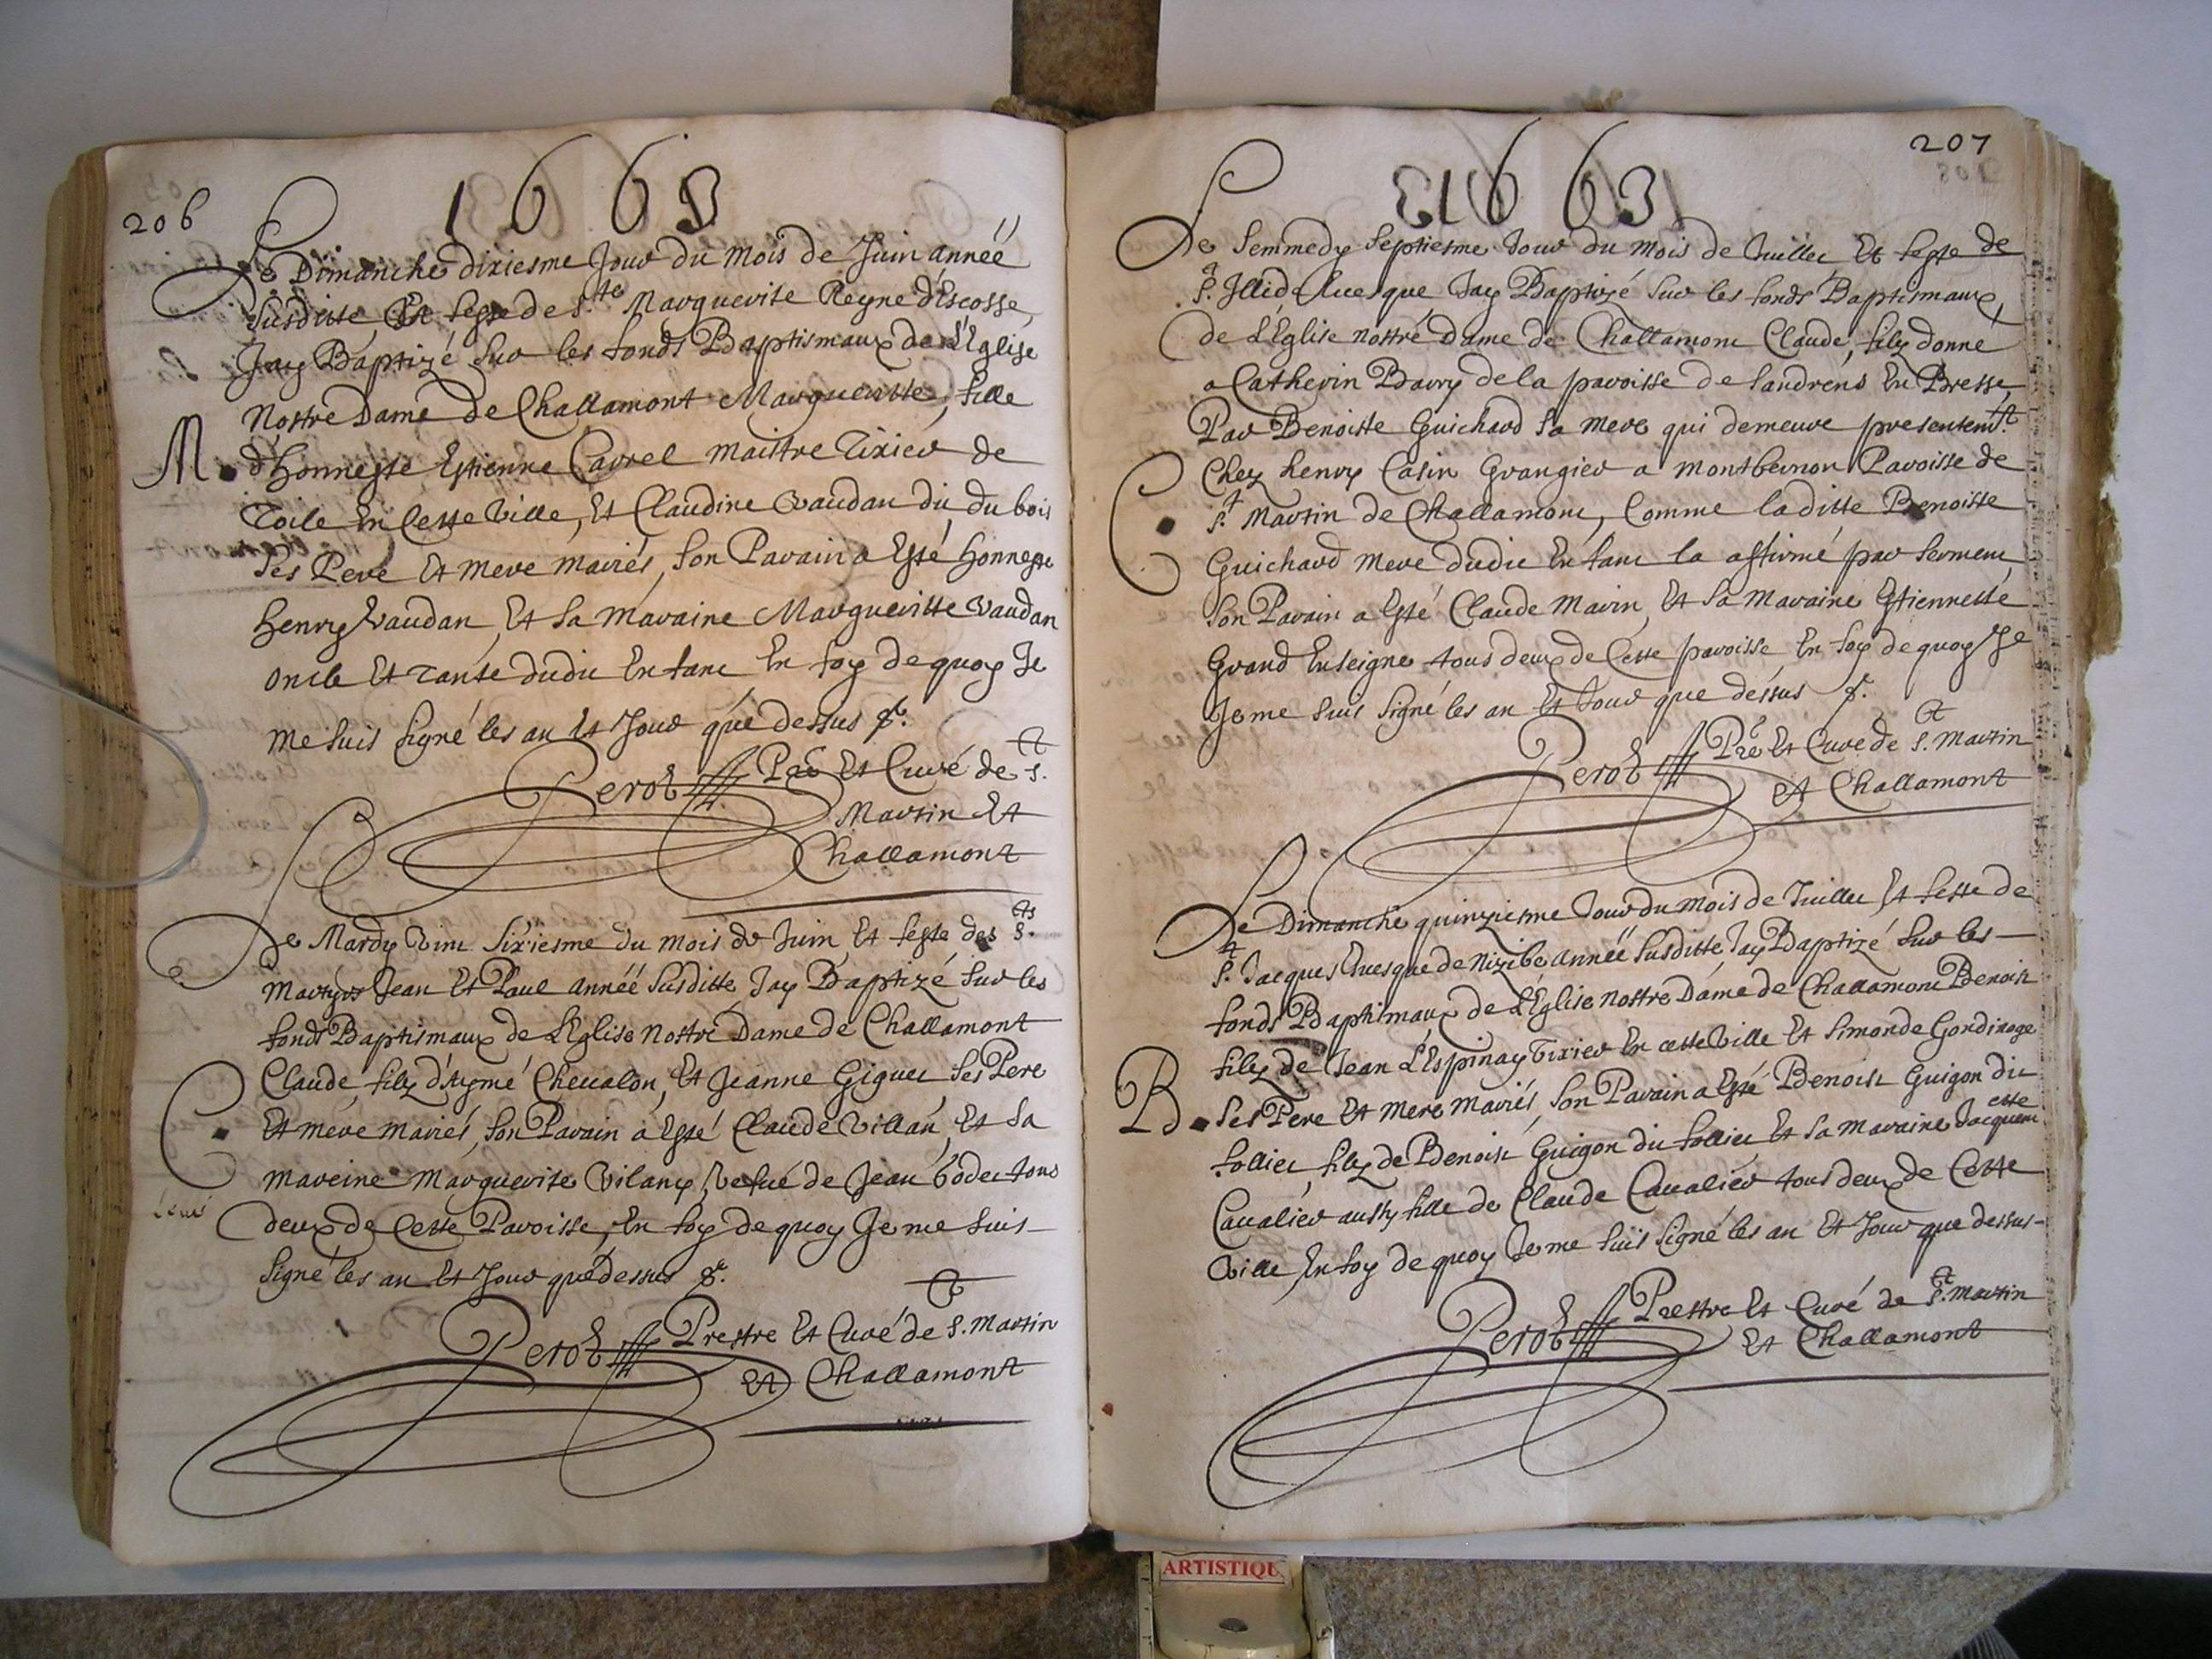 206
1663
Le Dimanche dixiesme Jour du mois de Juin année
susditte Et feste de Ste Marguerite Reyne d'Escosse,
Jay Baptizé sur les fonds Baptismaux de L'Eglise
Nostre Dame de Challamont Marguerite, fille
M. d'honneste Estienne Carrel maistre Tixier de
Toile En Cette Ville, Et Claudine Vaudan dit du bois
ses Pere Et mere mariés, son Parain a Esté honneste
henry Vaudan, Et sa maraine Marguerite Vaudan
oncle Et Tante dudit Enfant En foy de quoy Je
me suis signé les an Et Jour que dessus &c.
Perot Pre Et Curé de St
Martin Et
Challamont
Le Mardy Vint sixiesme du mois de Juin Et feste des Sts
Martyrs Jean Et Paul année susditte Jay Baptizé sur les
fonds Baptismaux de L'Eglise Nostre Dame de Challamont
C. Claude, filz d'Aymé Cheualon, Et Jeanne Giguet ses Pere
Et mere mariés, son Parain a Esté Claude Villan, Et sa
mareine Marguerite Vilany, Vefue de Jean bodet tous
deux de Cette Paroisse, En foy de quoy Je me suis
signé les an Et Jour que dessus &c.
Perot Prestre Et Curé de St. Martin
Et Challamont
207
1663
Le semmedy septiesme Jour du mois de Juillet Et feste de
St. Illide Euesque Jay Baptizé sur les fonds Baptismaux,
de L'Eglise nostre Dame de Challamont Claude, filz donné
a Catherin Barry de la paroisse de sandrens En Bresse,
Par Benoiste Guichard sa mere qui demeure presentemt.
C. Chez henry Casin Grangier a montbernon Paroisse de
St. Martin de Challamont, Comme laditte Benoiste
Guichard mere dudit Enfant la affirmé par serment
son Parain a Esté Claude marin, Et sa Maraine Estiennette
Grand Enseigne tous deux de Cette paroisse En foy de quoy Je
Je me suis signé les an Et Jour que dessus &c.
Perot Pre Et Curé de St. Martin
Et Challamont
Le Dimanche quinziesme Jour du mois de Juillet Et feste de
St. Jacques Euesque de Nizibe année susditte Jay Baptizé sur les
fonds Baptismaux de L'Eglise nostre Dame de Challamont Benoist
filz de Jean L'Espinay Tixier En cette Ville Et simonde Gondinoge
B. ses Pere Et mere mariés, son Parain a Esté Benoist Guigon dit
folliet, filz de Benoist Guigon dit folliet Et sa maraine Jacquemette
Caualier aussy fille de Claude Caualier tous deux de Cette
Ville, En foy de quoy Je me suis signé les an Et Jour que dessus
Perot Prestre Et Curé de St. Martin
Et Challamont
ARTISTIQU